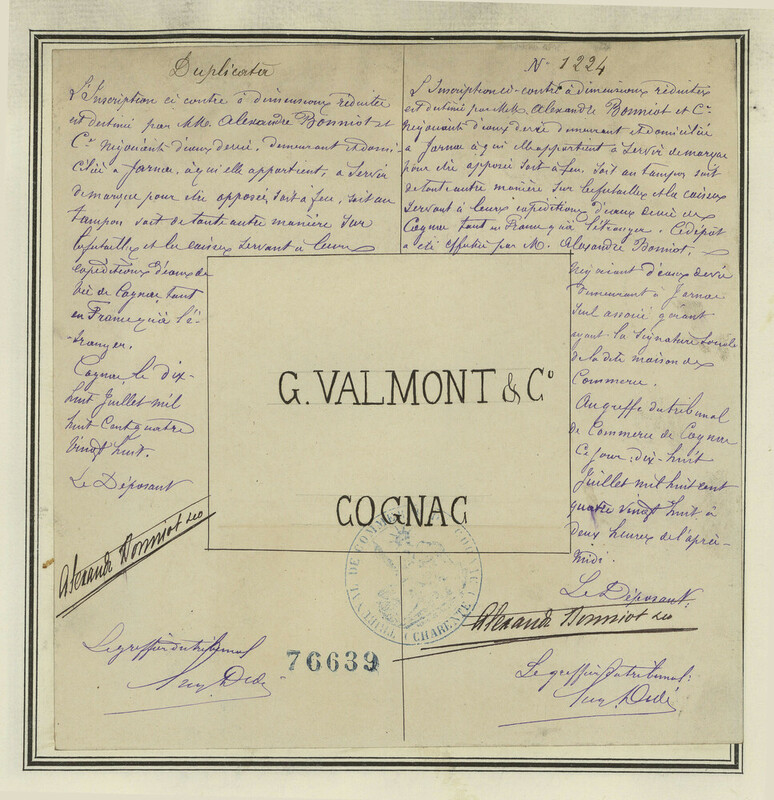 Duplicata
L'Inscription ci contre à dimensions réduites
est destiné par MM. Alexandre Bonniot et
Cie Négociants d'eaux devie, demeurant et domi-
cilié à Jarnac, à qui elle appartient, à servir
de marque pour être apposée soit à feu, soit au
tampon soit de toute autre manière sur
les futailles et les caisses servant à leurs
expéditions d'eaux de
vie de Cognac tant
en France qu'à l'é-
tranger.
Cognac, le dix-
huit Juillet mil
huit cent quatre
vingt huit.
Le Déposant
Alexandre Bonniot &co
Le greffier du tribunal
No 1224
L'Inscription ci-contre à dimensions réduites
est destiné par MM. Alexandre Bonniot et Cie
Négociants d'eaux devie demeurant et domiciliés
à Jarnac à qui elle appartient à servir de marque
pour être apposée soit à feu, soit au tampon soit
de toute autre manière sur les futailles et les caisses
servant à leurs expéditions d'eaux devie de
Cognac tant en France qu'à l'étranger. Ce dépôt
a été effectué par M. Alexandre Bonniot,
Négociant d'eaux devie
demeurant à Jarnac
seul associé gérant
ayant la signature sociale
de la dite maison de
Commerce.
Au greffe du tribunal
de Commerce de Cognac
Ce jour: dix-huit
Juillet mil huit cent
quatre vingt huit à
deux heures de l'après-
midi.
Le Déposant.
Alexandre Bonniot &co
Le greffier du tribunal:
G. VALMONT & Co
COGNAC
TRIBUNAL DE COMMERCE COGNAC
(CHARENTE)
76639